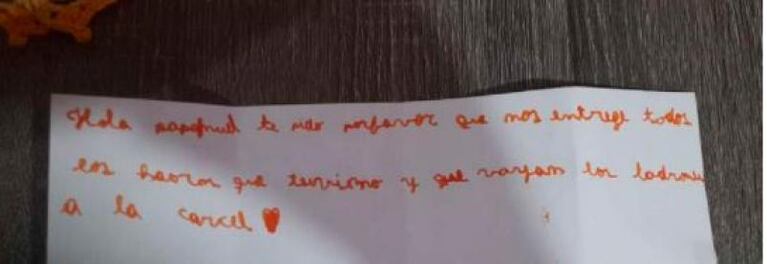 Hola papanuel te pido porfavor que nos entrege todos
los que tuvimo y que vayam los ladrones
a la carcel